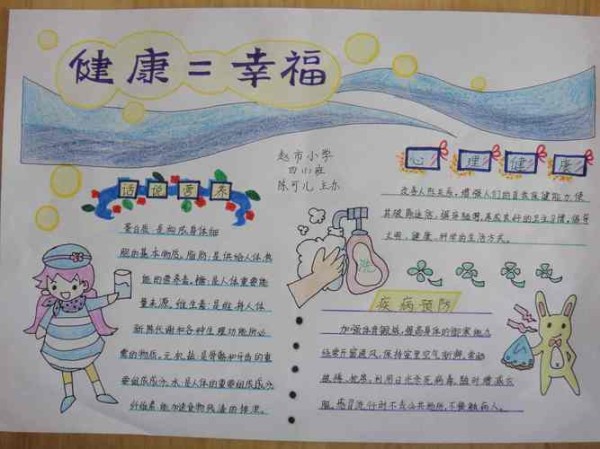 健康=幸福
赵市小学
四(1)班
陈可儿 主办
话说营养
蛋白质:是构成身体细
胞的基本物质。脂肪:是供给人体热
能的营养素。糖:是人体重要能
量来源。维生素:是维持人体
新陈代谢和各种生理功能所必
需的物质。无机盐:是骨骼和牙齿的重
要组成成分。水:是人体的重要组成成分
纤维素:能加速食物残渣的排泄。
心理健康
改善人际关系,增强人们的自我保健能力,使
其破除迷信,摒弃陋习,养成良好的卫生习惯,倡导
文明、健康、科学的生活方式。
洗
疾病预防
加强体育锻炼,提高身体的御寒能力
经常开窗通风,保持室里空气新鲜,勤动
被褥、枕头,利用日光杀死病毒。随时增减衣
服,感冒流行时不去公共场所,不接触病人。